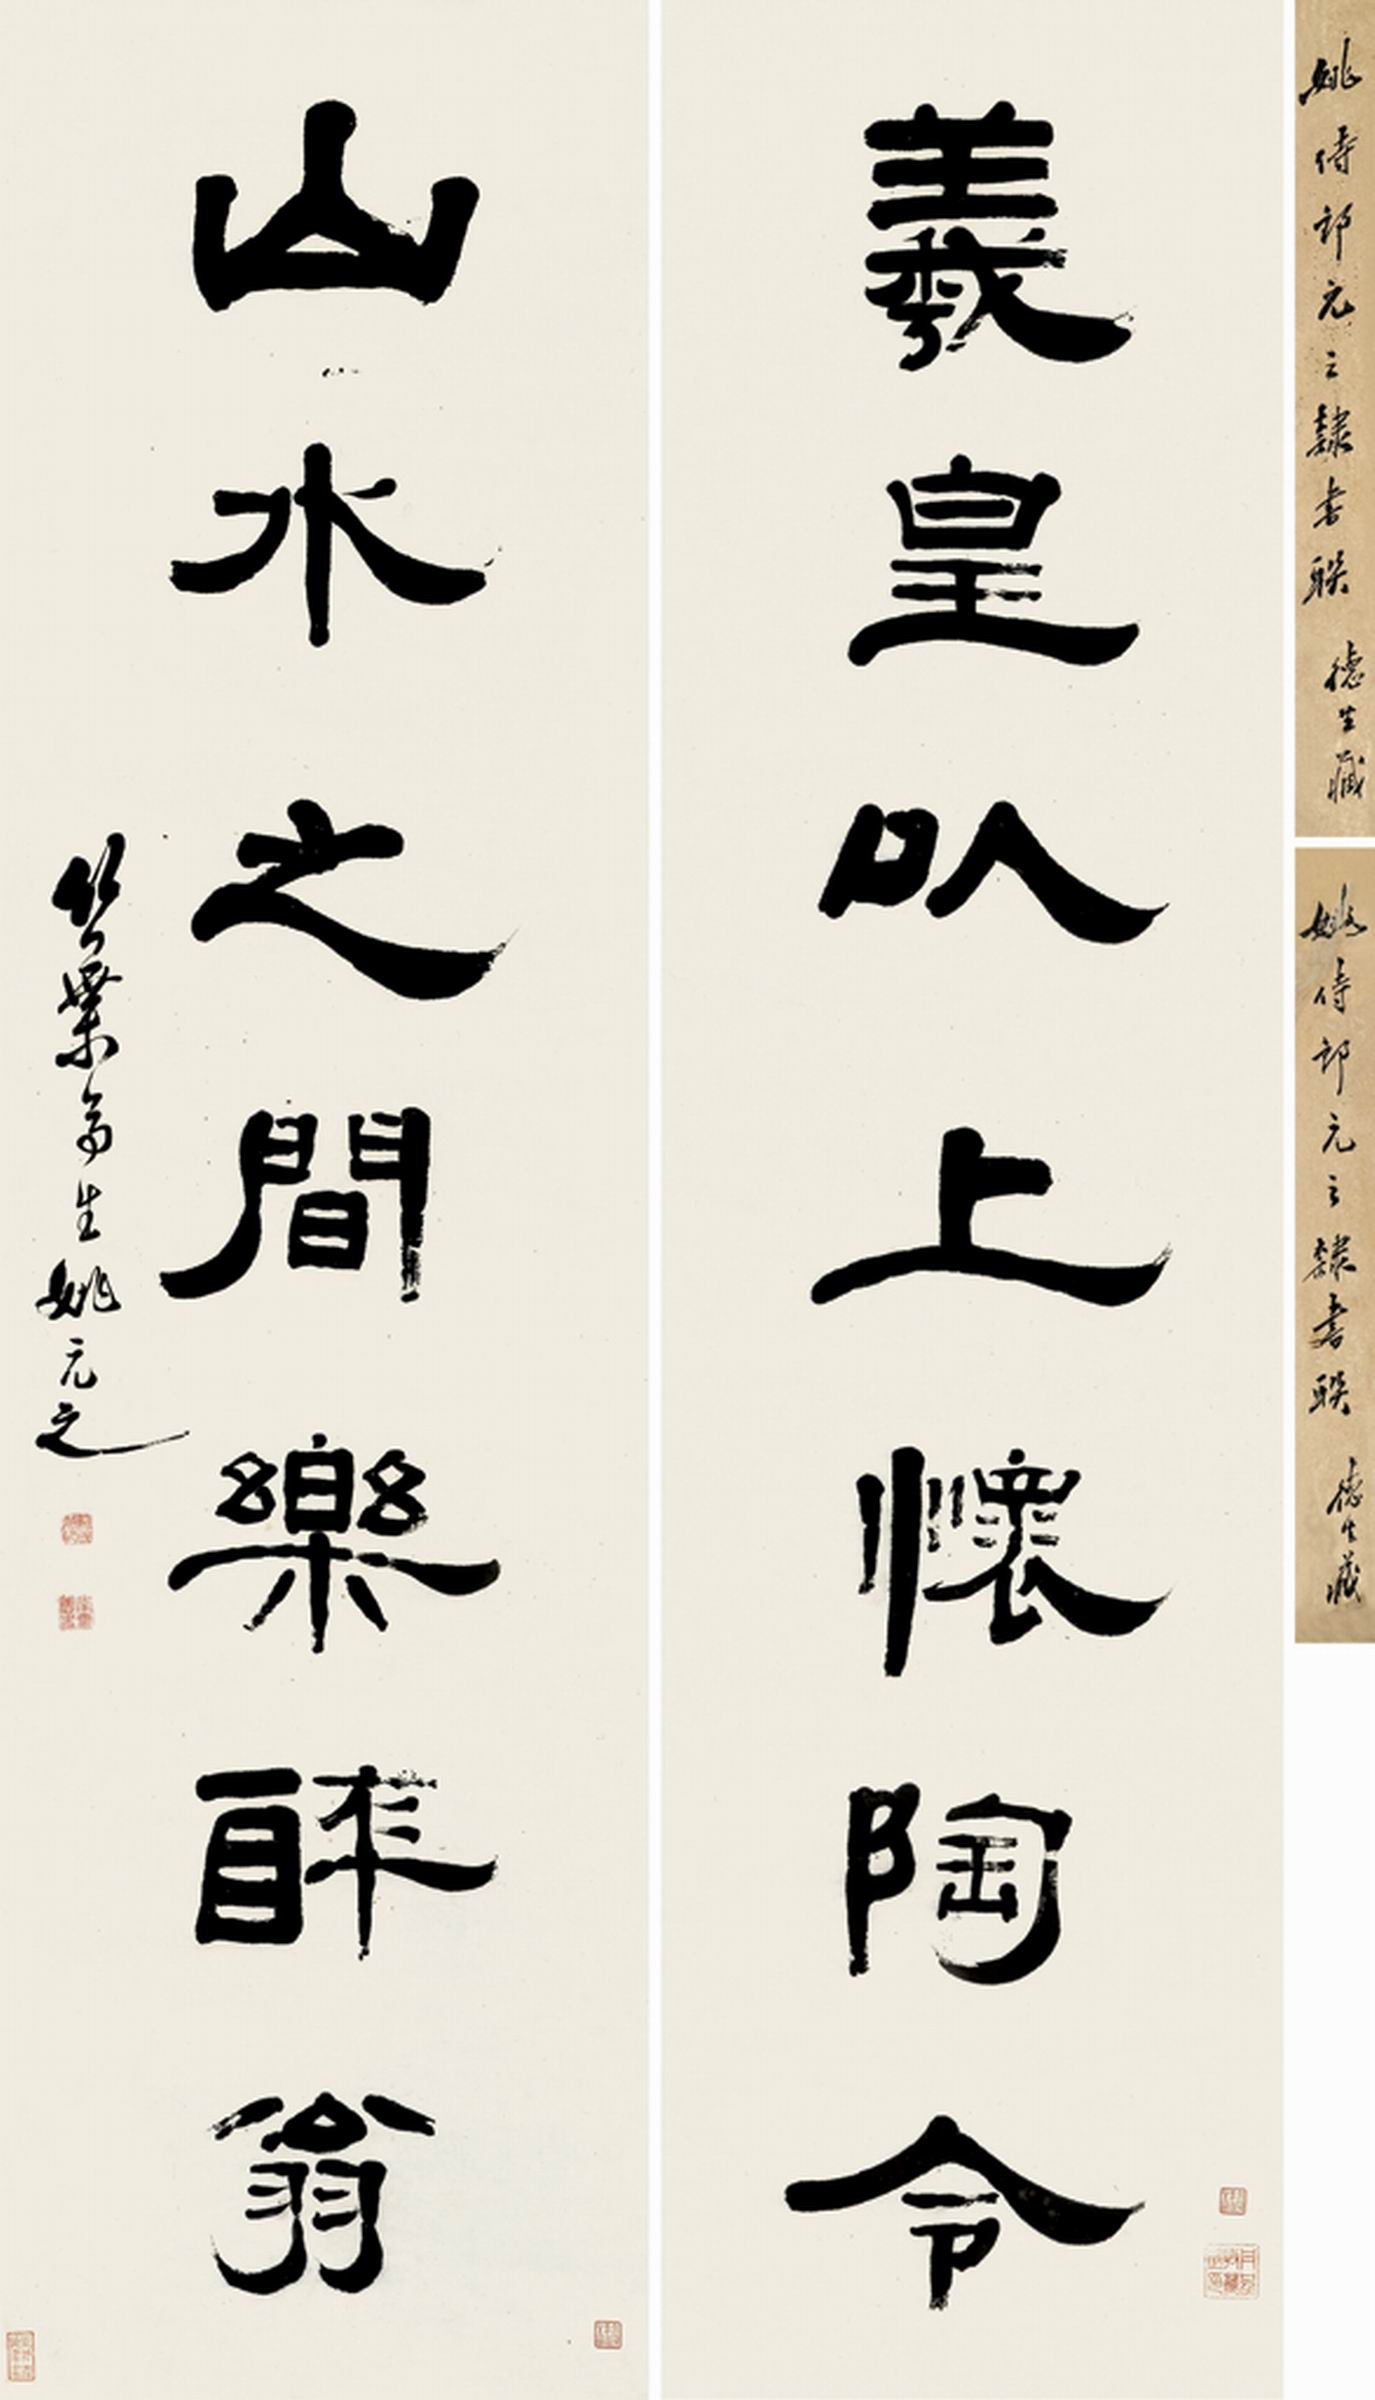 姚侍郎元之隸書聯 德生藏
姚侍郎元之隸書聯 德生藏
羲皇以上懷陶令
山水之間樂醉翁
竹葉亭生姚元之